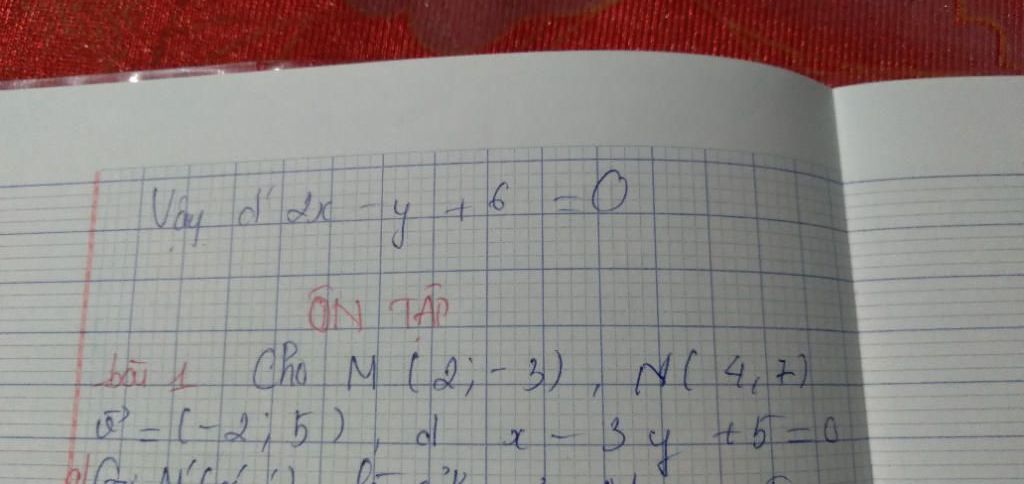 Vậy d' 2x - y + 6 = 0
ÔN TẬP
bài 1 Cho M (2; -3), N( 4, 7)
v⃗ = (-2; 5), d x - 3y + 5 = 0